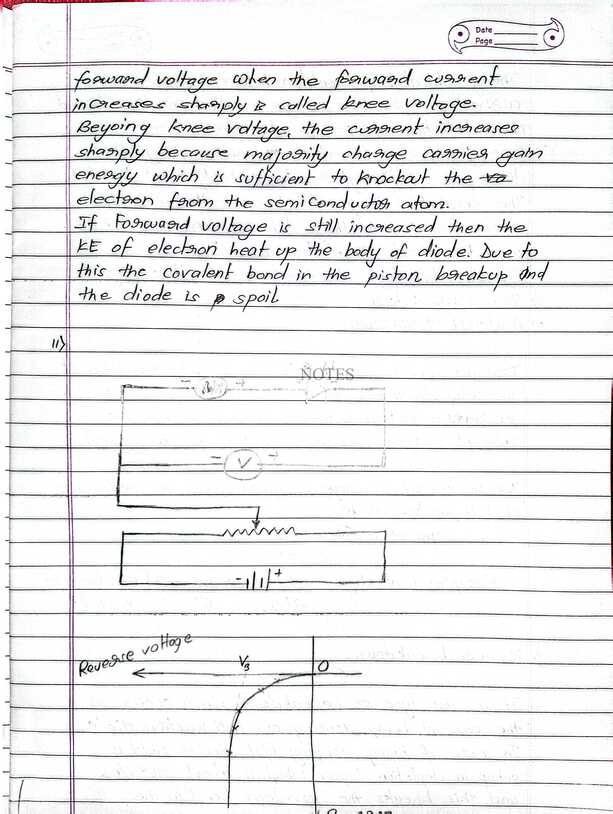 Date
Page
forward voltage when the forward current
increases sharply is called knee voltage.
Beyoing knee voltage, the current increases
sharply because majority charge carrier gain
energy which is sufficient to knockout the
electron from the semiconductor atom.
If Forward voltage is still increased then the
KE of electron heat up the body of diode. Due to
this the covalent bond in the piston breakup and
the diode is spoil.
11>
NOTES
- +
- V +
- +
Reverse voltage
VB
O